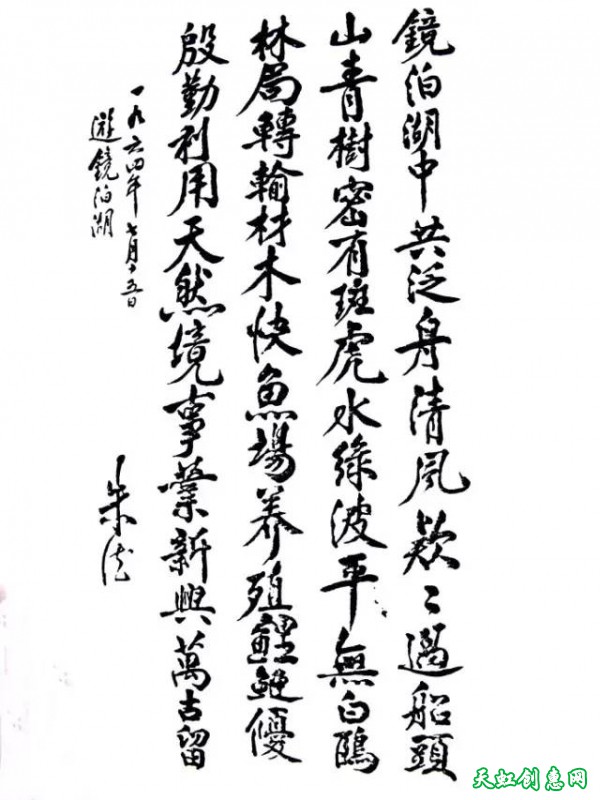 鏡泊湖中共泛舟清風欵〻過船頭
山青樹密有斑虎水綠波平無白鷗
林局轉輸材木快魚場养殖鯉鯽優
殷勤利用天然境事業新興萬古留
一九六四年七月十五日
遊鏡泊湖
朱德
天虹创惠网